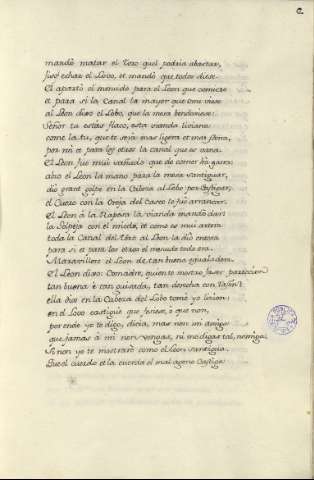 C.
mandó matar el Toro quel podria abastar,
fisol echar el Lobo, et mandó que todos diese.
El apartó el menudo para el Leon que comiese
et para si la Canal la mayor que ome viese
al Leon dixo el Lobo, que la mesa bendixiese:
Señor tu estás flaco, esta vianda liviana
comela tu, que te seja mas ligera et mas sana,
por mi et para los otros la canal que es vana.
El Leon fue mui sañudo que de comer ha gana:
alzó el Leon la mano para la mesa santiguar,
dió grant golpe en la Cabeza al Lobo por castigar,
el Cuero con la Oreja del Casco le fue arrancar.
El Leon à la Raposa la vianda mandó dar:
la Golpeja con el miedo, et como es mui artera
toda la Canal del Toro al Leon la dió entera
para si et para los otros el menudo todo era.
Maravillose el Leon de tan buena egualadera.
El Leon dixo: Comadre, quien te mostro faser particion
tan buena è tan guisada, tan derecha con rason?
ella dixo en la Cabeza del Lobo tomé yo lision:
en el Lobo castigué que fisiese, o que non,
por ende yo te digo, dicia, mas non mi amiga
que jamas à mi non vengas, ni me digas tal, nemiga
Si non yo te mostraré como el Leon santigua.
Que el cuerdo et la cuerda el mal ageno castiga.